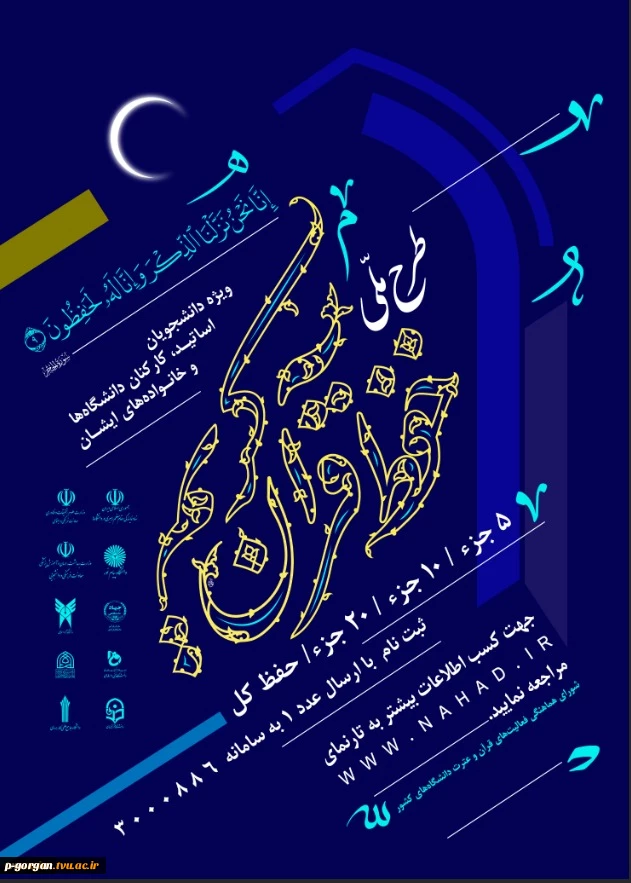 إِنَّا نَحْنُ نَزَّلْنَا الذِّكْرَ وَ إِنَّا لَهُ لَحَفِظُونَ
۹
طرح ملّی
حفظ قرآن کریم
ویژه دانشجویان
اساتید، کارکنان دانشگاه‌ها
و خانواده‌های ایشان
۵ جزء / ۱۰ جزء / ۲۰ جزء / حفظ کل
ثبت نام با ارسال عدد ۱ به سامانه ۳۰۰۰۰۸۸۶
جهت کسب اطلاعات بیشتر به تارنمای
WWW.NAHAD.IR
مراجعه نمایید.
شورای هماهنگی فعالیت‌های قرآن و عترت دانشگاه‌های کشور
p-gorgan.tvu.ac.ir